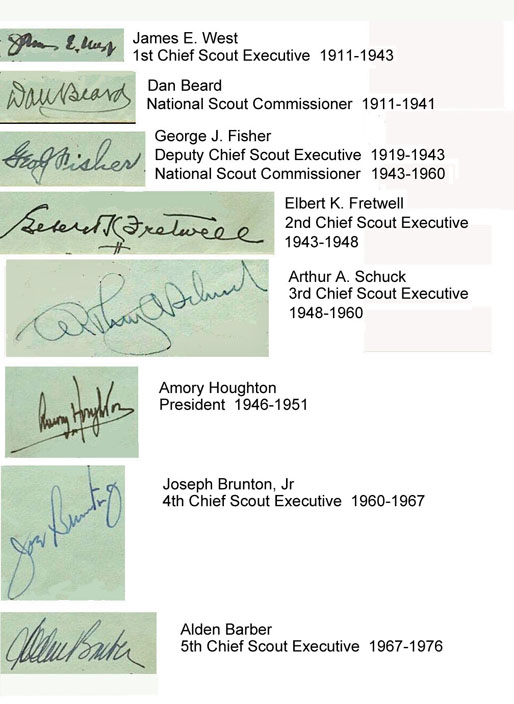 James E. West
James E. West
1st Chief Scout Executive 1911-1943
Dan Beard
Dan Beard
National Scout Commissioner 1911-1941
Geo J Fisher
George J. Fisher
Deputy Chief Scout Executive 1919-1943
National Scout Commissioner 1943-1960
Elbert K Fretwell
Elbert K. Fretwell
2nd Chief Scout Executive
1943-1948
Arthur A Schuck
Arthur A. Schuck
3rd Chief Scout Executive
1948-1960
Amory Houghton
Amory Houghton
President 1946-1951
Joe Brunton
Joseph Brunton, Jr
4th Chief Scout Executive 1960-1967
Alden Barber
Alden Barber
5th Chief Scout Executive 1967-1976